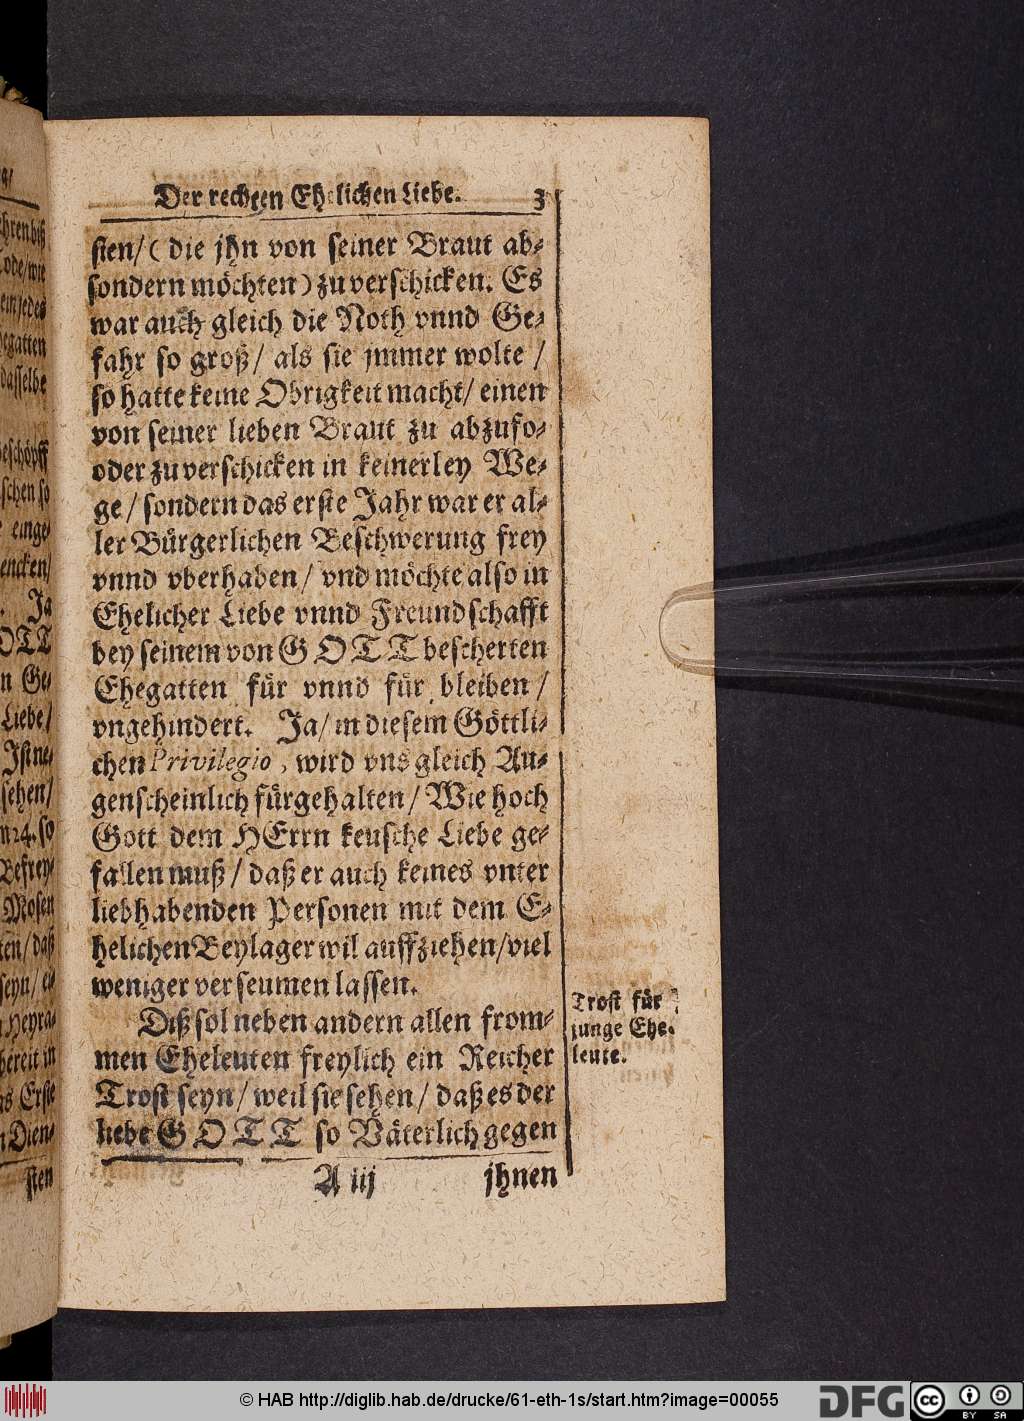 Der rechten Ehelichen Liebe. 3
sten/ (die jhn von seiner Braut ab-
sondern möchten) zu verschicken. Es
war auch gleich die Noth vnnd Ge-
fahr so groß/ als sie jmmer wolte/
so hatte keine Obrigkeit macht/ einen
von seiner lieben Braut zu abzufo-
oder zu verschicken in keinerley We-
ge/ sondern das erste Jahr war er al-
ler Bürgerlichen Beschwerung frey
vnnd vberhaben/ vnd möchte also in
Ehelicher Liebe vnnd Freundschafft
bey seinem von GOTT bescherten
Ehegatten für vnnd für bleiben/
vngehindert. Ja/ in diesem Göttli-
chen Privilegio, wird vns gleich Au-
genscheinlich fürgehalten/ Wie hoch
Gott dem HErrn keusche Liebe ge-
fallen muß/ daß er auch keines vnter
liebhabenden Personen mit dem E-
helichen Beylager wil auffziehen/ viel
weniger verseumen lassen.
Diß sol neben andern allen from-
men Eheleuten freylich ein Reicher
Trost seyn/ weil sie sehen/ daß es der
liebe GOTT so Väterlich gegen
A iij jhnen
Trost für
junge Ehe-
leute.
hren biß
ode/ wie
ein jedes
egatten
dasselbe
eschöpff
schen so
einge-
encken/
Ja
OTT
n Ge-
Liebe/
Ist ne-
sehen/
m 24. so
Befrey-
Mosen
ten/ daß
seyn/ ei-
Heyra-
bereit in
as Erste
n Dien-
sten
© HAB http://diglib.hab.de/drucke/61-eth-1s/start.htm?image=00055
DFG
cc BY SA